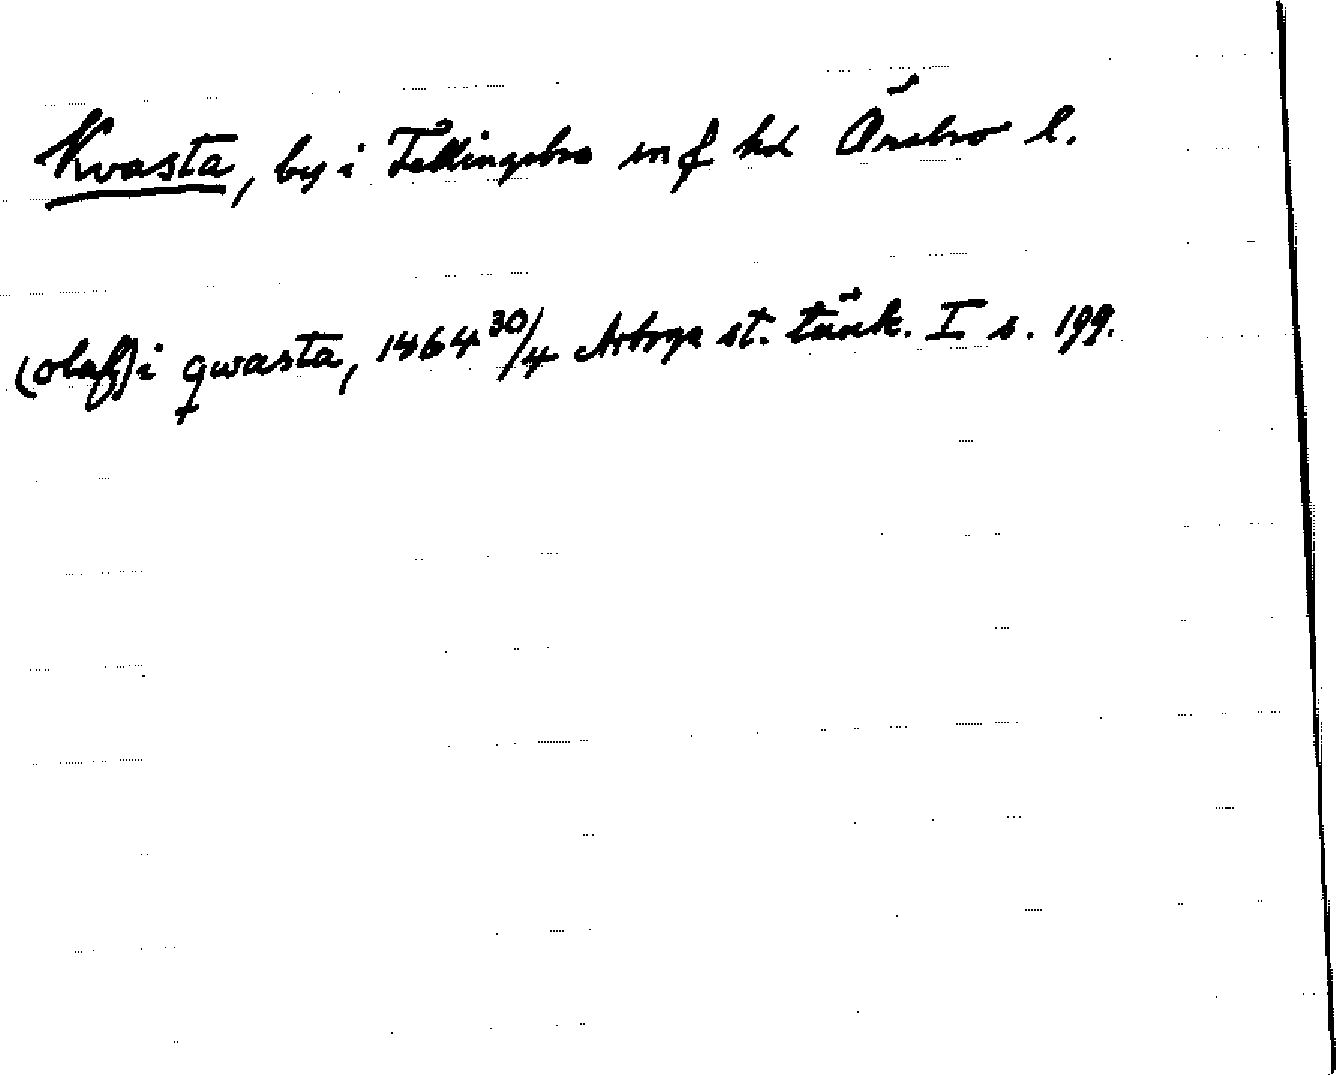 Kvasta, by i Fellingsbro sn o hd Örebro l.
(olaff) i qwasta, 1464 30/4 Arboga st. tänk. I s. 199.